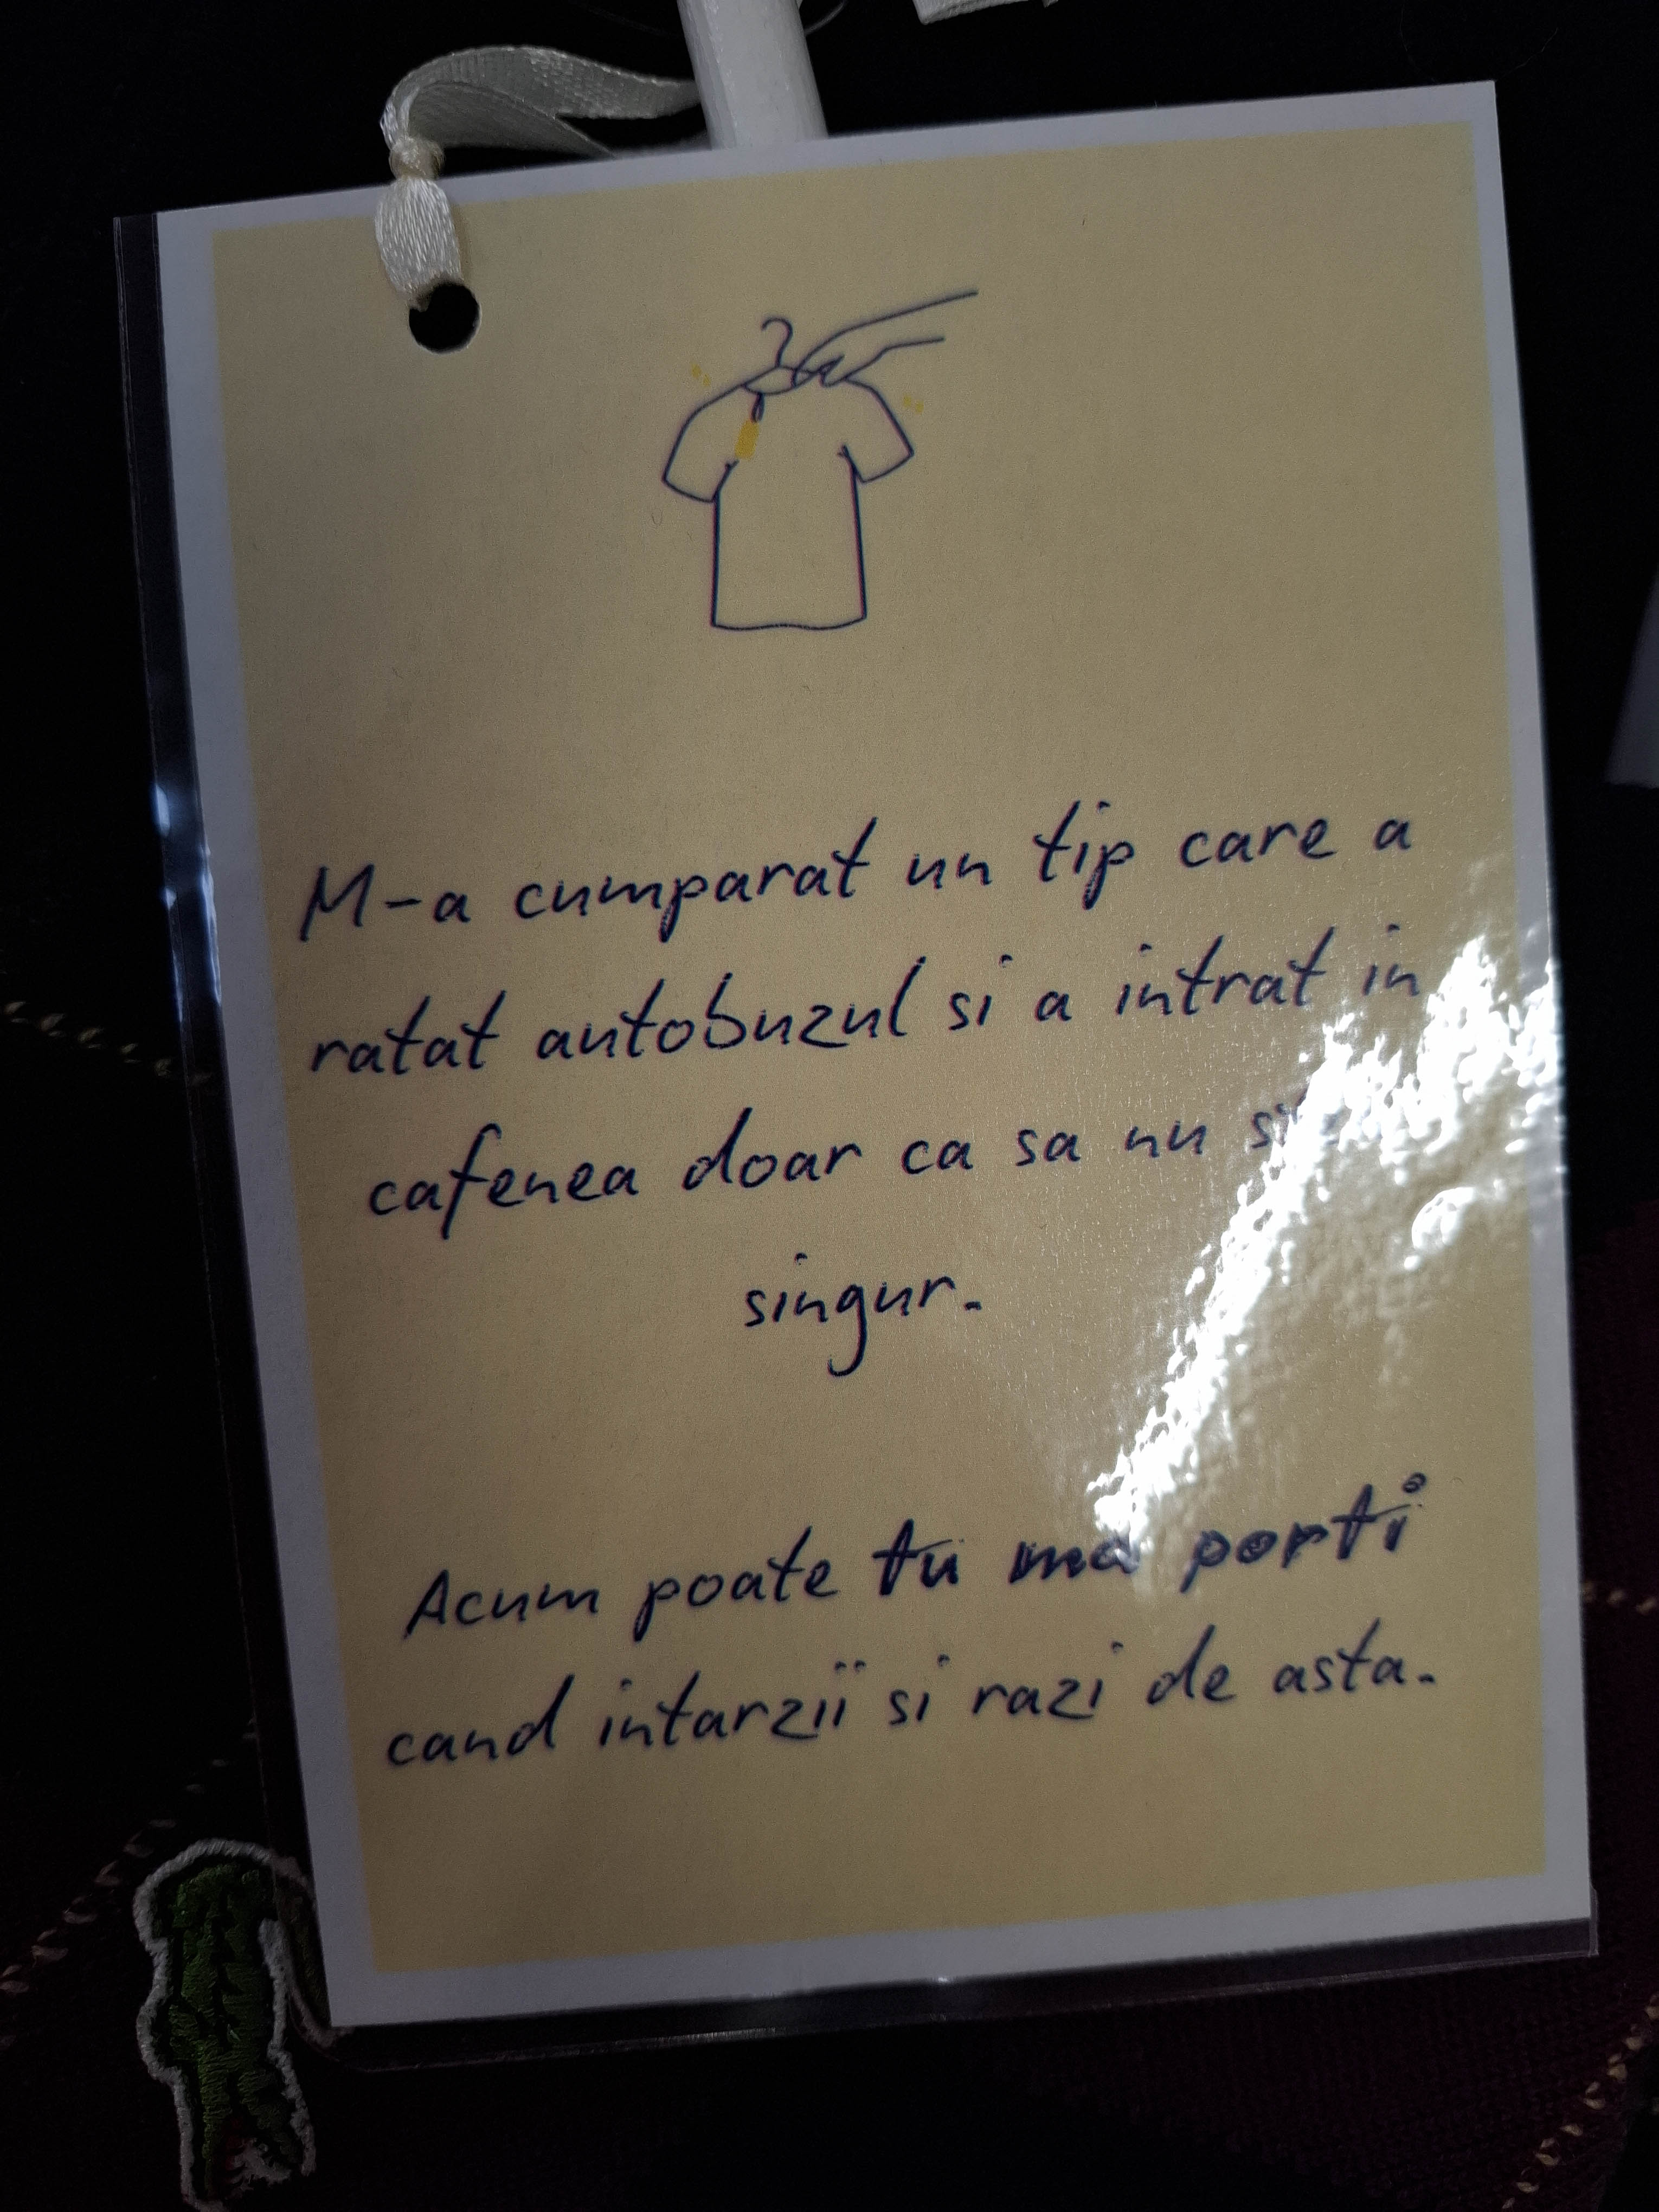 M-a cumparat un tip care a
ratat autobuzul si a intrat in
cafenea doar ca sa nu
singur.
Acum poate tu ma porti
cand intarzii si razi de asta.